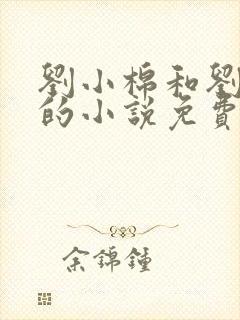 劉小棉和劉
的小說免費
余錦鐘